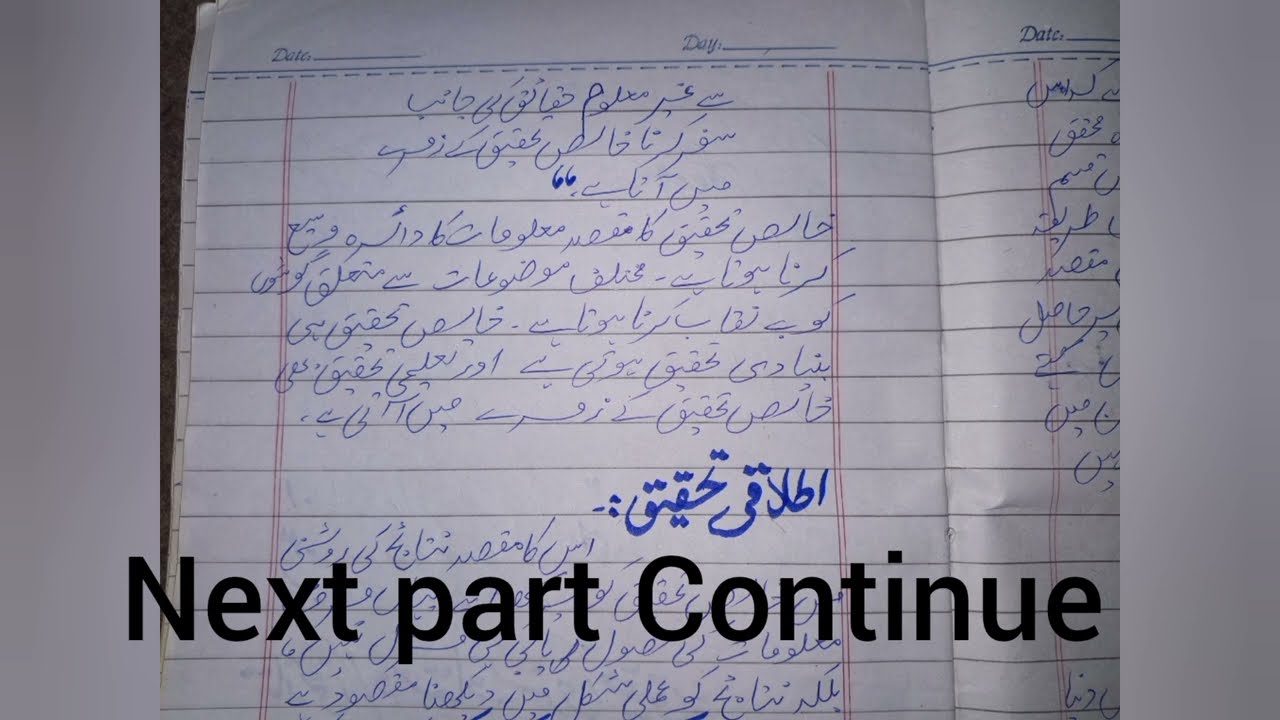 Date:
Day:
Date:
سے غیر معلوم حقائق کی جانب
سفر کرنا خالص تحقیق کے زمرے
میں آتا ہے۔“
خالص تحقیق کا مقصد معلومات کا دائرہ وسیع
کرنا ہوتا ہے۔ مختلف موضوعات سے متعلق گوشوں
کو بے نقاب کرنا ہوتا ہے۔ خالص تحقیق ہی
بنیادی تحقیق ہوتی ہے اور تعلیمی تحقیق بھی
خالص تحقیق کے زمرے میں آتی ہے۔
اطلاقی تحقیق:۔
اس کا مقصد نتائج کی روشنی
Next part Continue
معلومات کی حصول
بلکہ نتائج کو عملی شکل میں دیکھنا مقصود ہے
محقق
قسم
طریقہ
مقصد
حاصل
میں